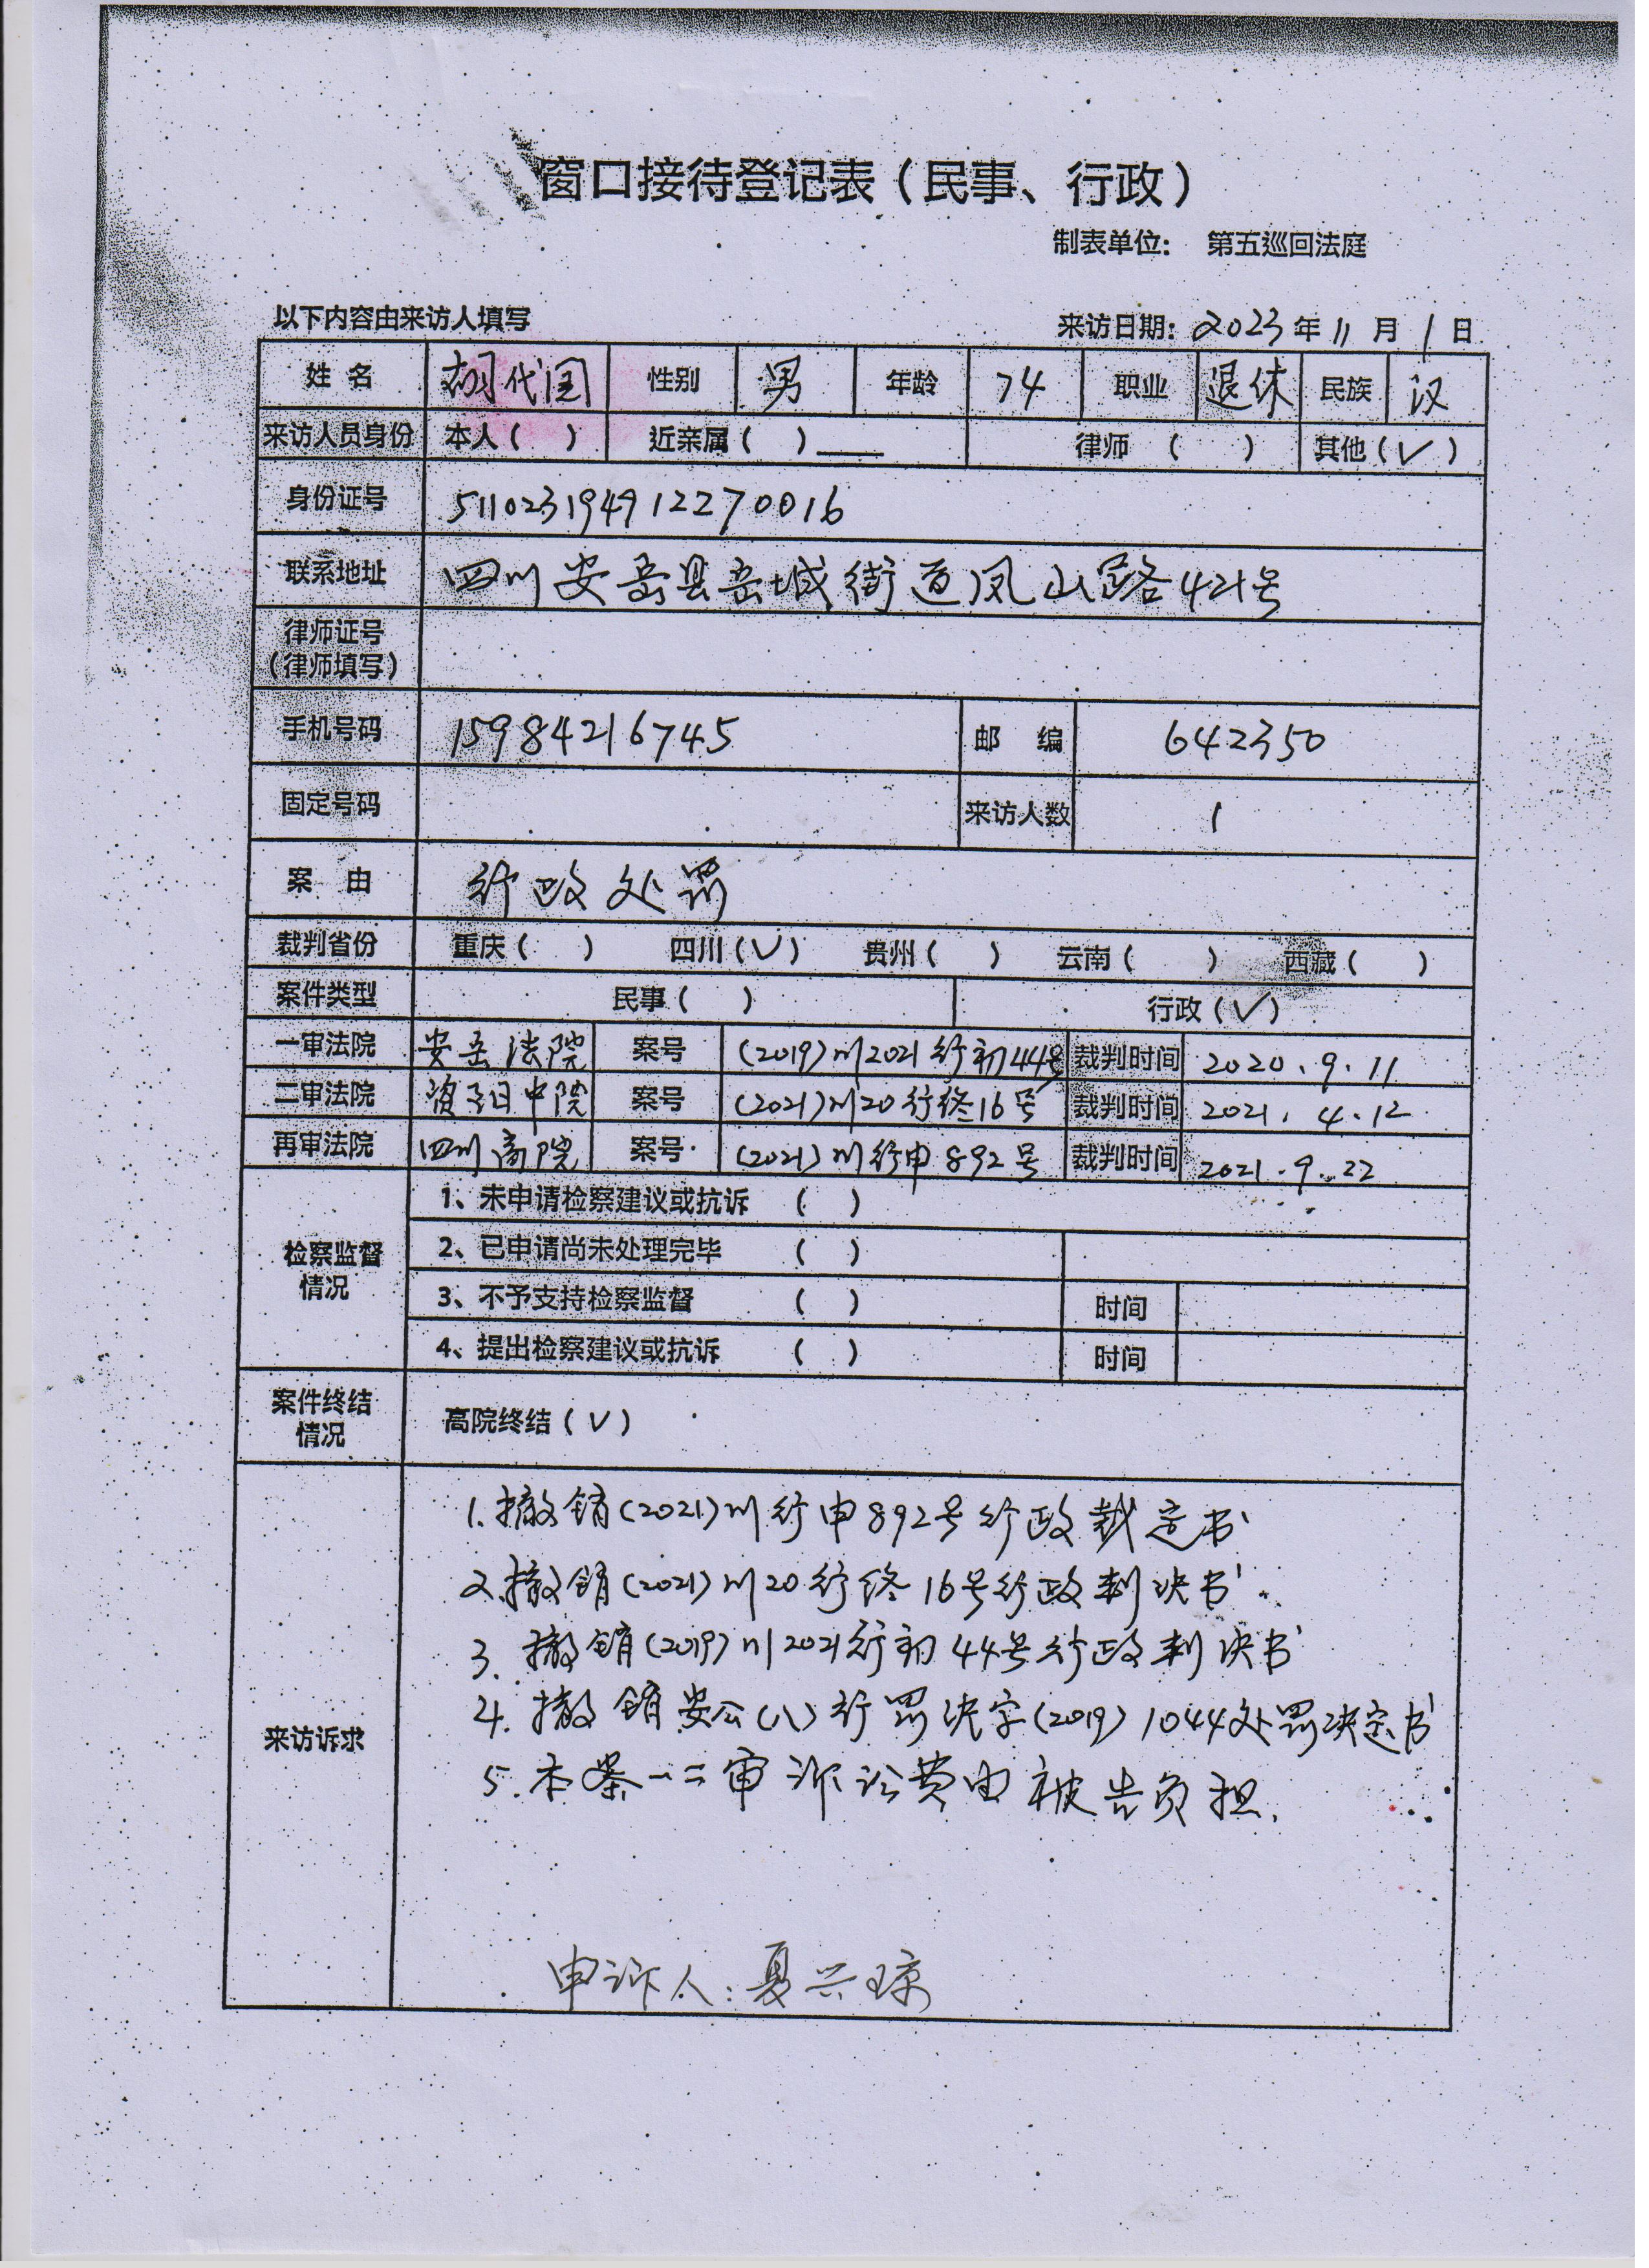 窗口接待登记表（民事、行政）
制表单位： 第五巡回法庭
以下内容由来访人填写 来访日期：2023年11月1日
姓名 胡代国 性别 男 年龄 74 职业 退休 民族 汉
来访人员身份 本人（ ） 近亲属（ ）____ 律师（ ） 其他（√）
身份证号 511023194912270016
联系地址 四川安岳县岳城街道凤山路421号
律师证号
（律师填写）
手机号码 15984216745 邮编 642350
固定号码 来访人数 1
案由 行政处罚
裁判省份 重庆（ ） 四川（√） 贵州（ ） 云南（ ） 西藏（ ）
案件类型 民事（ ） 行政（√）
一审法院 安岳法院 案号 (2019)川2021行初44号 裁判时间 2020.9.11
二审法院 资阳中院 案号 (2021)川20行终16号 裁判时间 2021.4.12
再审法院 四川高院 案号 (2021)川行申892号 裁判时间 2021.9.22
检察监督
情况
1、未申请检察建议或抗诉 （ ）
2、已申请尚未处理完毕 （ ）
3、不予支持检察监督 （ ） 时间
4、提出检察建议或抗诉 （ ） 时间
案件终结
情况
高院终结（√）
来访诉求
1.撤销(2021)川行申892号行政裁定书
2.撤销(2021)川20行终16号行政判决书.
3.撤销(2019)川2021行初44号行政判决书
4.撤销安公(八)行罚决字(2019)1044处罚决定书
5.本案一二审诉讼费由被告负担.
申诉人：夏兴琼